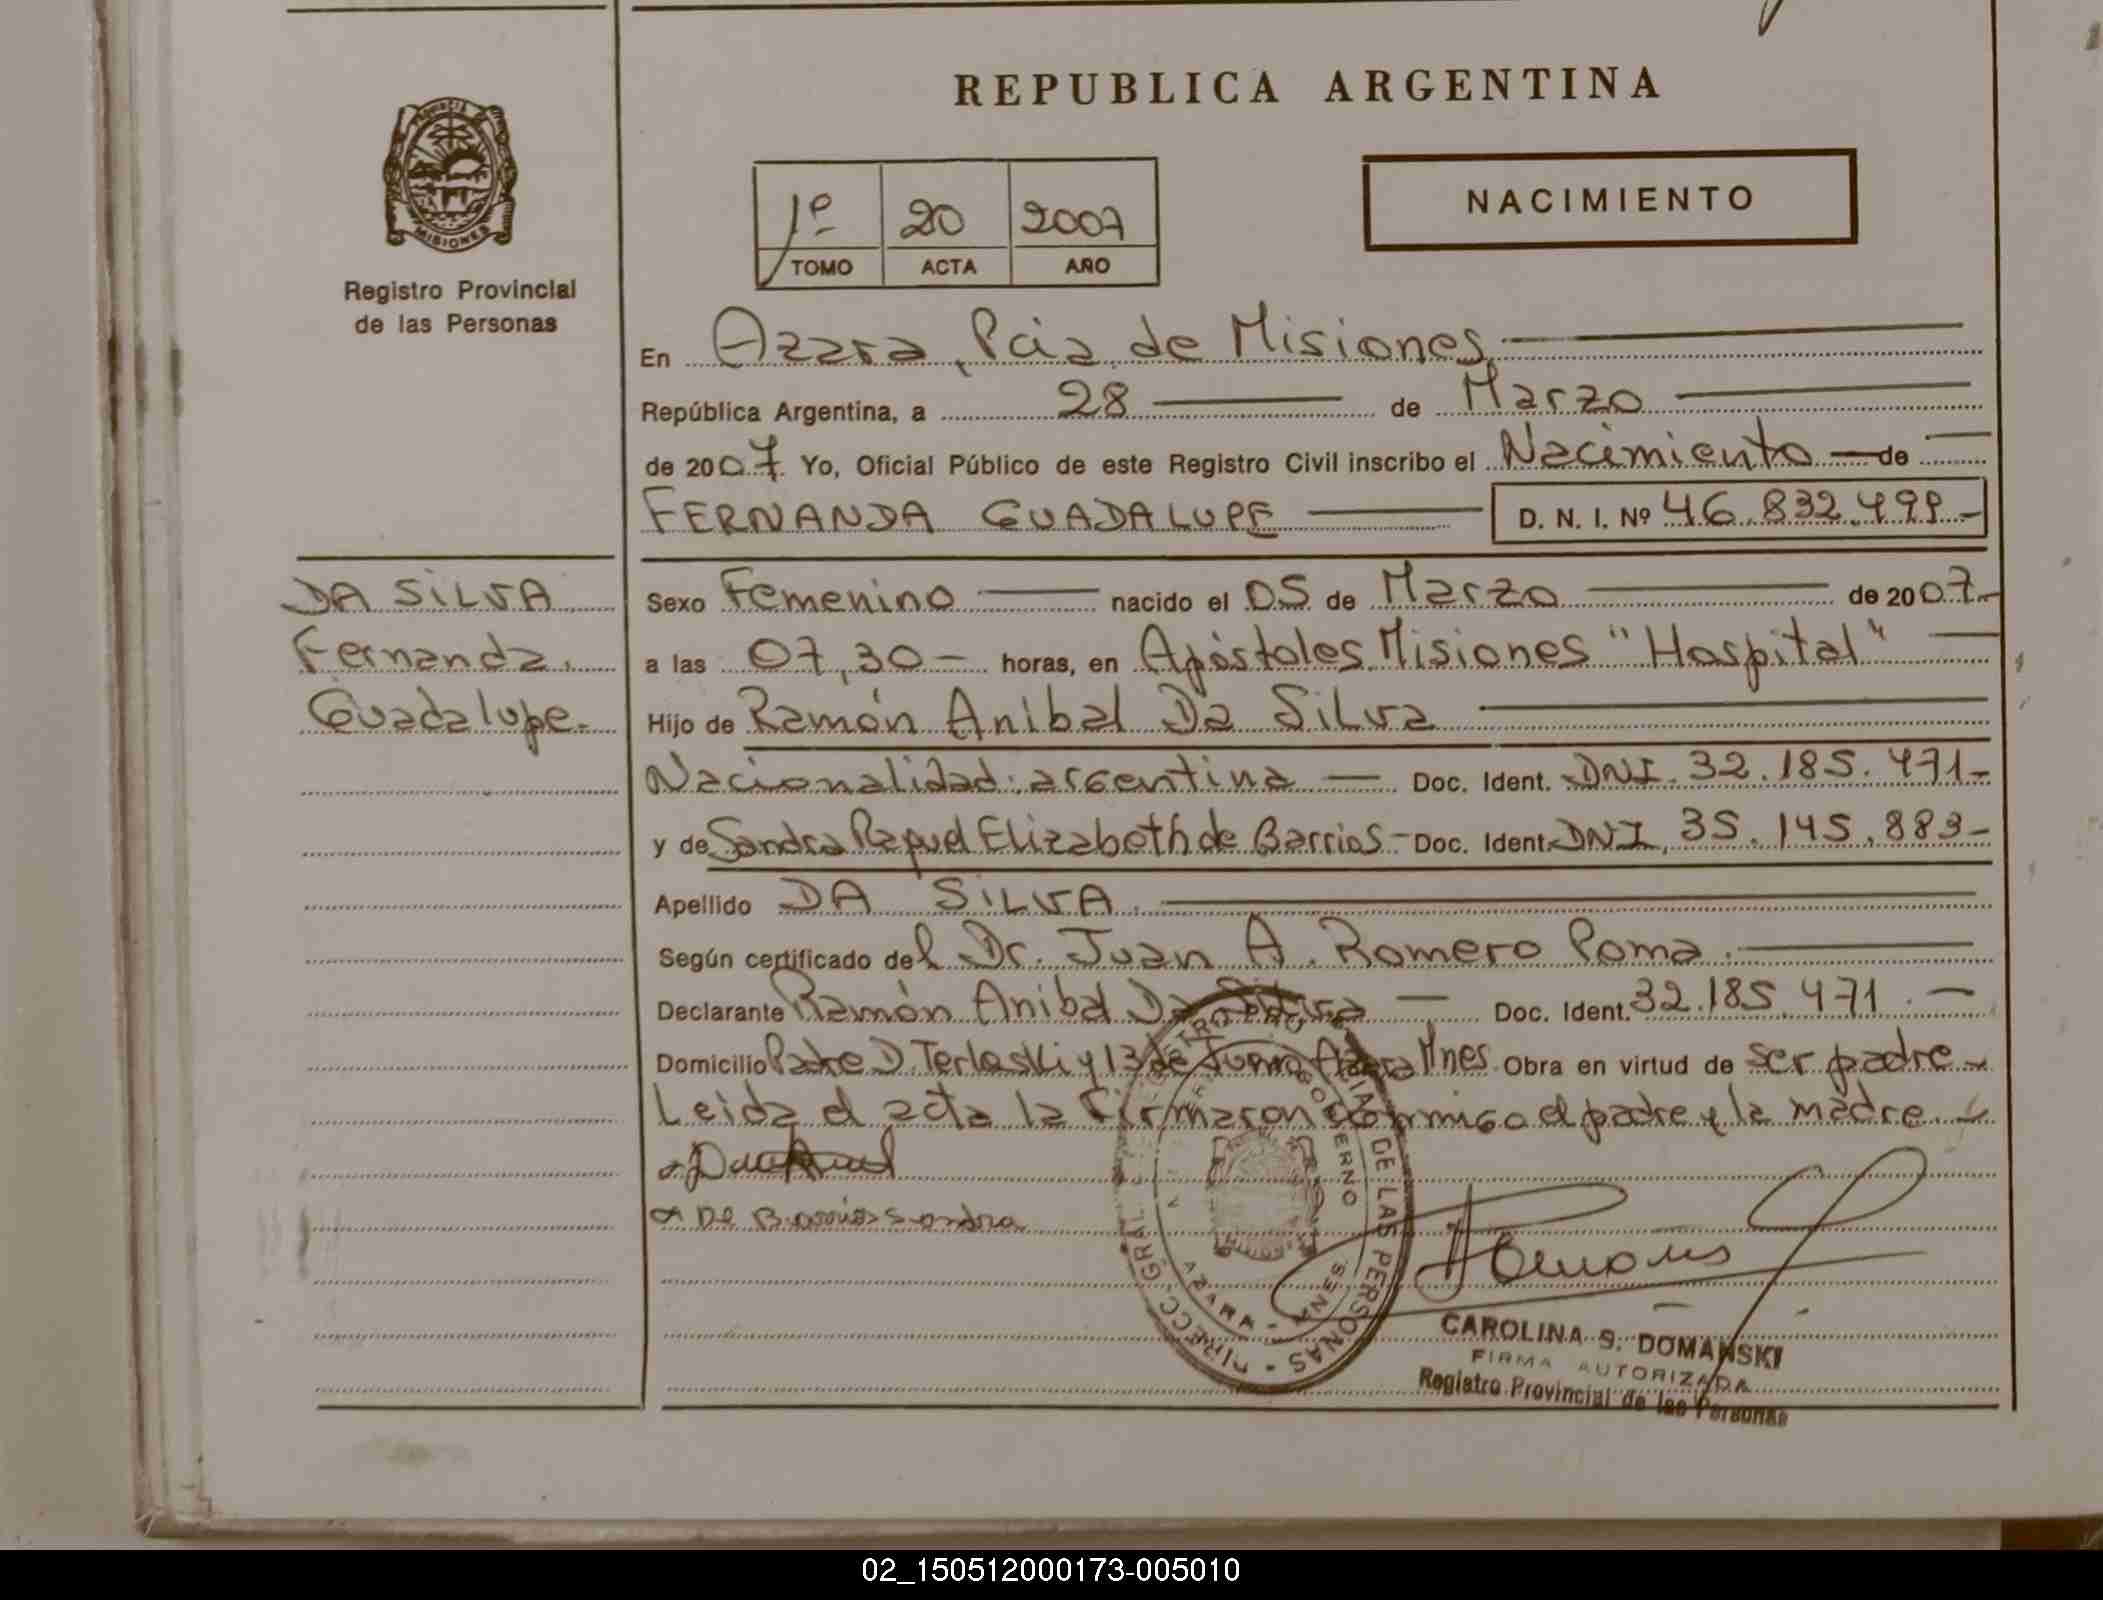 REPUBLICA ARGENTINA
PROVINCIA
MISIONES
Registro Provincial
de las Personas
1º 20 2007
TOMO ACTA AÑO
NACIMIENTO
En Azara, Pcia. de Misiones
República Argentina, a 28 de Marzo
de 2007. Yo, Oficial Público de este Registro Civil inscribo el Nacimiento de
FERNANDA GUADALUPE D. N. I. Nº 46.832.499-
DA SILVA
Fernanda
Guadalupe.-
Sexo Femenino nacido el 05 de Marzo de 2007.-
a las 07,30- horas, en Apóstoles Misiones "Hospital"
Hijo de Ramón Anibal Da Silva
Nacionalidad: argentina Doc. Ident. DNI. 32.185.471-
y de Sandra Raquel Elizabeth de Barrios - Doc. Ident. DNI. 35.145.883-
Apellido DA SILVA.
Según certificado del Dr. Juan A. Romero Poma.
Declarante Ramón Anibal Da Silva Doc. Ident. 32.185.471.-
Domicilio Padre D. Terlaski y 13 de Azara Mnes. Obra en virtud de ser padre-
Leida el acta la firmaron conmigo el padre y la madre
De Barrios Sandra
DE LAS PERSONAS
AZARA - MNES.
CAROLINA S. DOMANSKI
FIRMA AUTORIZADA
Registro Provincial de las Personas
02_150512000173-005010